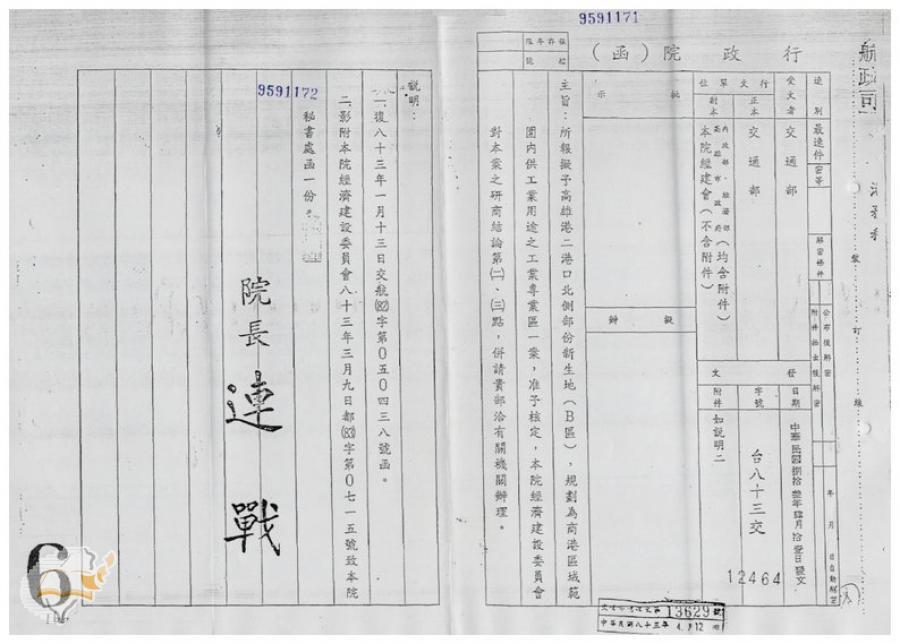 9591171
航政司
行政院（函）
速別
最速件
密等
解密條件
公布後解密
附件抽出後解密
年月日自動解密
受文者
交通部
行文單位
正本
交通部
副本
內政部、經濟部
高雄市政府（均含附件）
本院經建會（不含附件）
發文
日期
中華民國捌拾叁年肆月拾壹日發文
字號
台八十三交
12464
附件
如說明二
批示
擬辦
檔號
保存年限
主旨：所報擬予高雄港二港口北側部份新生地（B區），規劃為商港區域範
圍內供工業用途之工業專業區一案，准予核定，本院經濟建設委員會
對本案之研商結論第㈡、㈢點，併請貴部洽有關機關辦理。
裝訂線
13629號
中華民國八十三年4月12
9591172
說明：
一、復八十三年一月十三日交航(82)字第0五0四三八號函。
二、影附本院經濟建設委員會八十三年三月九日都(83)字第0七一五號致本院
秘書處函一份。
院長連戰
6